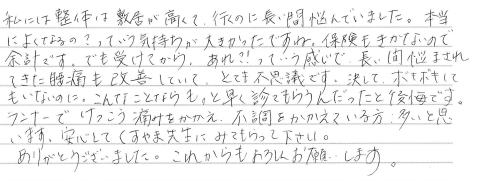 私には整体は敷居が高くて、行くのに長い間悩んでいました。本当
によくなるの？っていう気持ちが大きかったですね。保険もきかないので
余計です。でも受けてから、あれ？！っていう感じで、長い間悩まされ
てきた腰痛も改善していて、とても不思議です。決して、ボキボキして
もいないのに。こんなことならもっと早く診てもらうんだったと後悔です。
ランナーでけっこう痛みをかかえ、不調をかかえている方、多いと思
います。安心してくすやま先生にみてもらって下さい。
ありがとうございました。これからもよろしくお願いします。